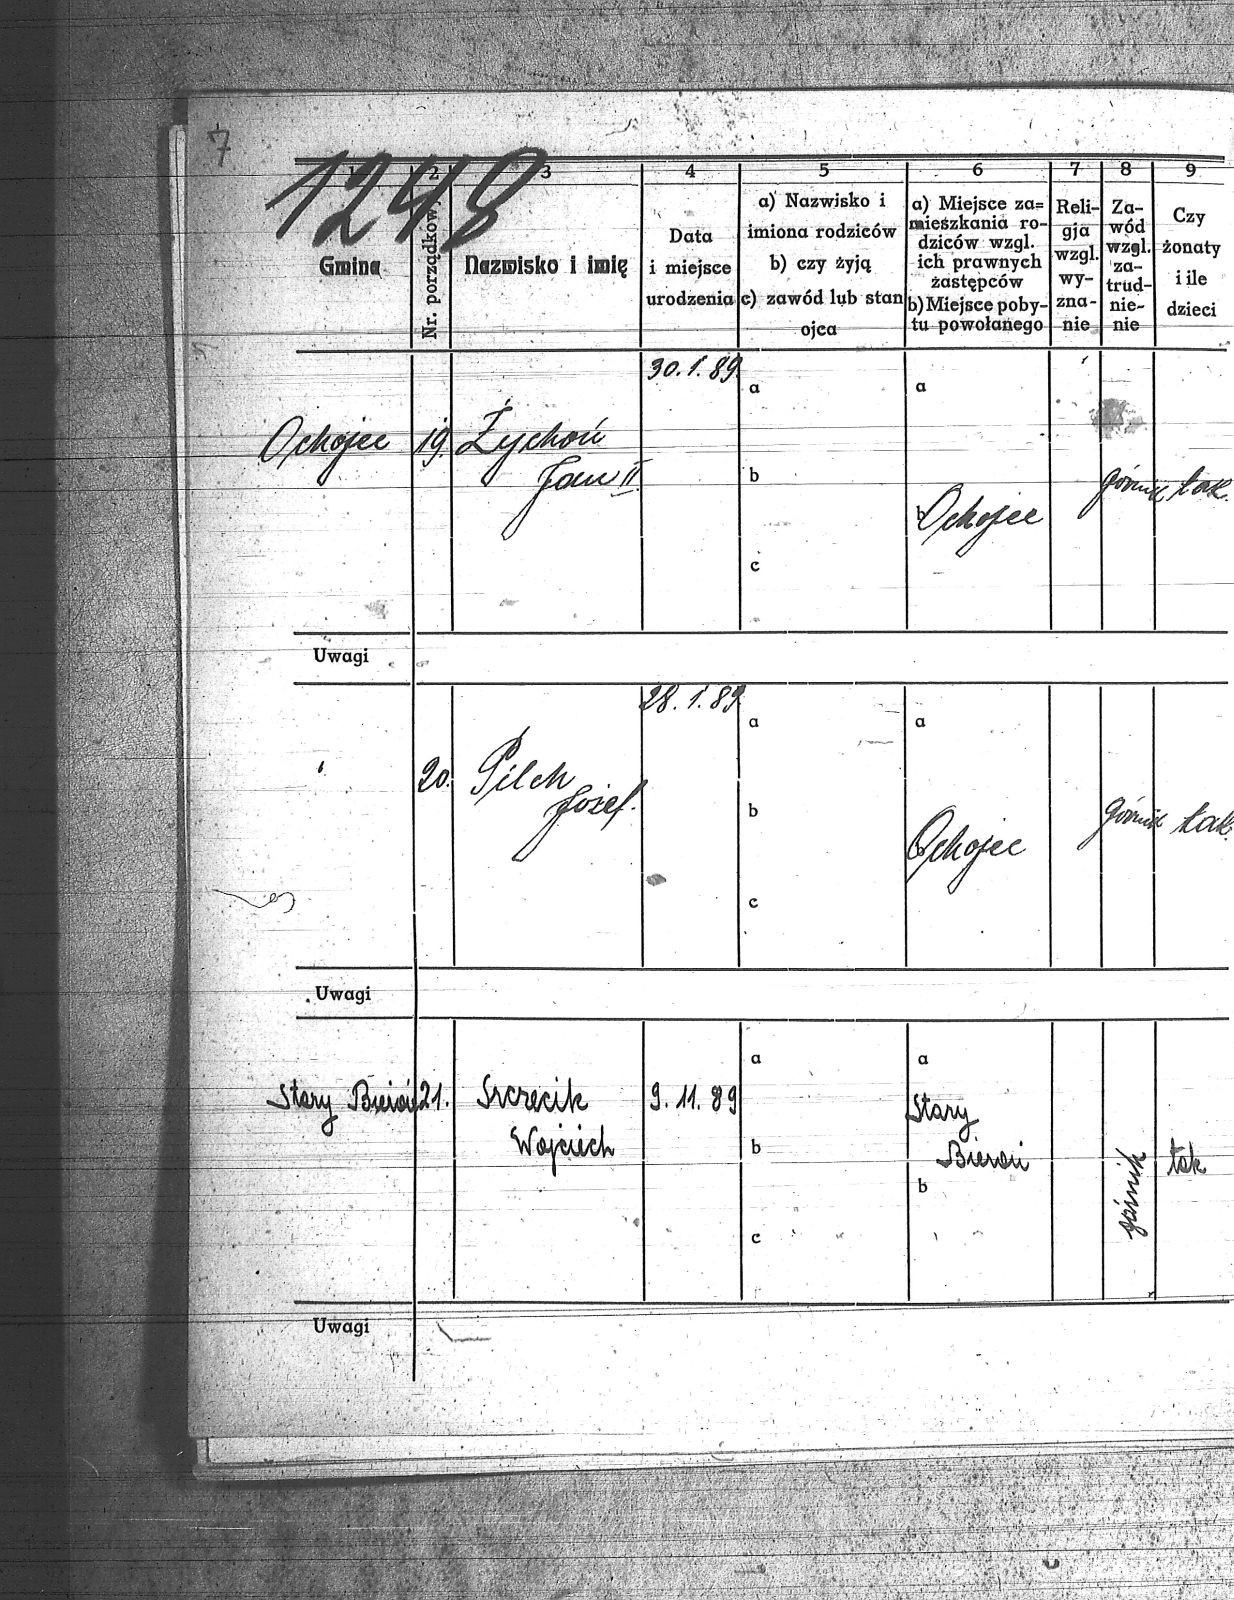 7
1248
1 2 3 4 5 6 7 8 9
Gmina
Nr. porządkowy
Nazwisko i imię
Data
i miejsce
urodzenia
a) Nazwisko i
imiona rodziców
b) czy żyją
c) zawód lub stan
ojca
a) Miejsce za=
mieszkania ro-
dziców wzgl.
ich prawnych
zastępców
b) Miejsce poby-
tu powołanego
Reli-
gja
wzgl.
wy-
zna-
nie
Za-
wód
wzgl.
za-
trud-
nie-
nie
Czy
żonaty
i ile
dzieci
30.1.89.
a
a
Ochojec 19. Żychoń
Jan II
b
górnik tak.
b
Ochojec
c
Uwagi
28.1.89.
a
a
20. Pilch
Józef.
b
górnik tak.
Ochojec
c
Uwagi
a
a
Stary Bieruń 21. Szczecik 9.11.89
Stary
Wojciech
b
Bieruń
górnik
tak
b
c
Uwagi